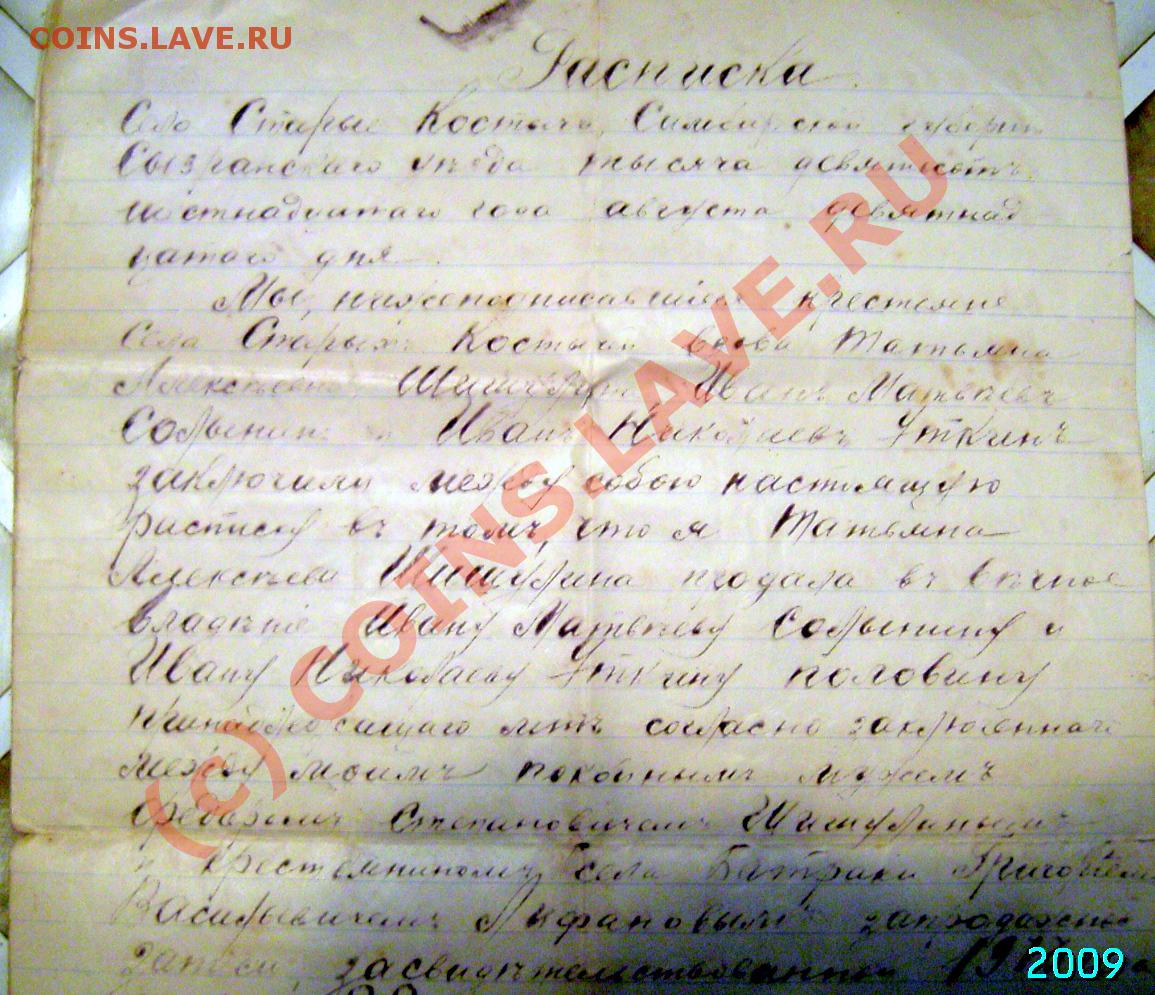 COINS.LAVE.RU
Расписка
Село Старые Костычи, Симбирской губернии
Сызранского уѣзда тысяча девятьсотъ
шестнадцатаго года августа девятнад
цатаго дня.
Мы, нижеподписавшіеся крестьяне
Села Старыхъ Костычей вдова Татьяна
Алексѣева Шишулина, Иванъ Матвѣевъ
Солынинъ и Иванъ Николаевъ Уткинъ
заключили между собою настоящую
расписку въ томъ, что я Татьяна
Алексѣева Шишулина продала въ вѣчное
владѣніе Ивану Матвѣеву Солынину и
Ивану Николаеву Уткину половину
принадлежащаго мнѣ согласно заключенной
между моимъ покойнымъ мужемъ
Степановичемъ Шишулинымъ
и крестьяниномъ села Григоріемъ
Васильевичемъ запродажной
записи, засвидѣтельствованной 19
(c) COINS.LAVE.RU
2009